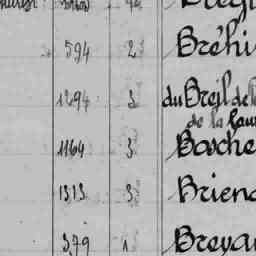 594 2 Bréhi
1294 3 du Breil de l
de la Lau
1164 3 Boche
1313 3 Brien
379 1 Breya